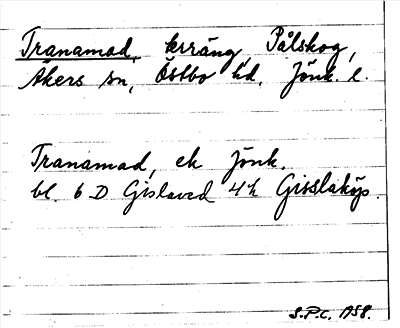 Tranamad, kerräng Pålskog,
Åkers sn, Östbo hd. Jönk. l.
Tranamad, ek Jönk.
bl. 6 D Gislaved 4h Gisslaköp.
S.P.C. 1958.